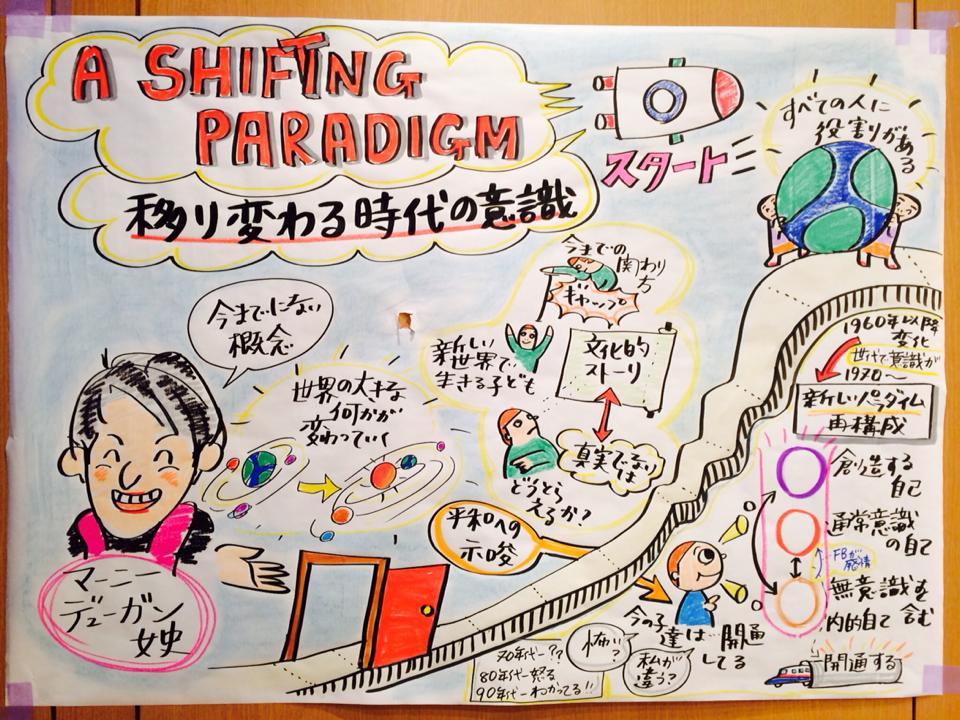 A SHIFTING
PARADIGM
移り変わる時代の意識
スタート
すべての人に
役割がある
今までにない
概念
世界の大きな
何かが
変わっていく
今までの
関わり
方
ギャップ
新しい
世界で
生きる子ども
文化的
ストーリ
真実ではない
どうとら
えるか?
平和への
示唆
マーニー
デューガン
女史
1960年以降
変化
世代で意識が
1970〜
新しいパラダイム
再構成
創造する
自己
通常意識
の自己
FBが
感情
無意識も
内的自己 含む
今の子
達は…開通
してる
怖い
?
私が
違う?
70年代-??
80年代-怒る
90年代-わかってる!!
開通する